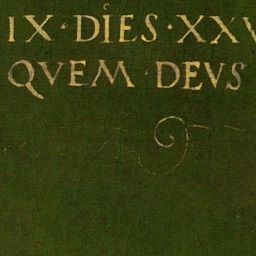 IX · DIES · XXV
QVEM · DEVS